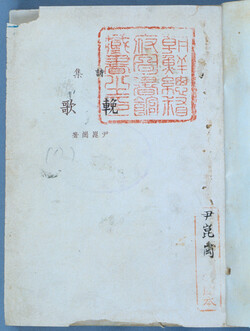 詩集
輓歌
尹崑崗著
朝鮮總督
府圖書館
藏書之印
尹崑崗